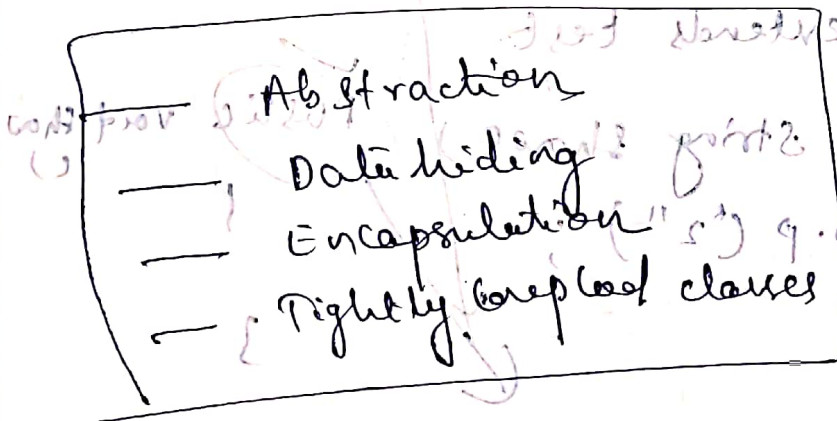 Abstraction
Data hiding
Encapsulation
Tightly coupled classes